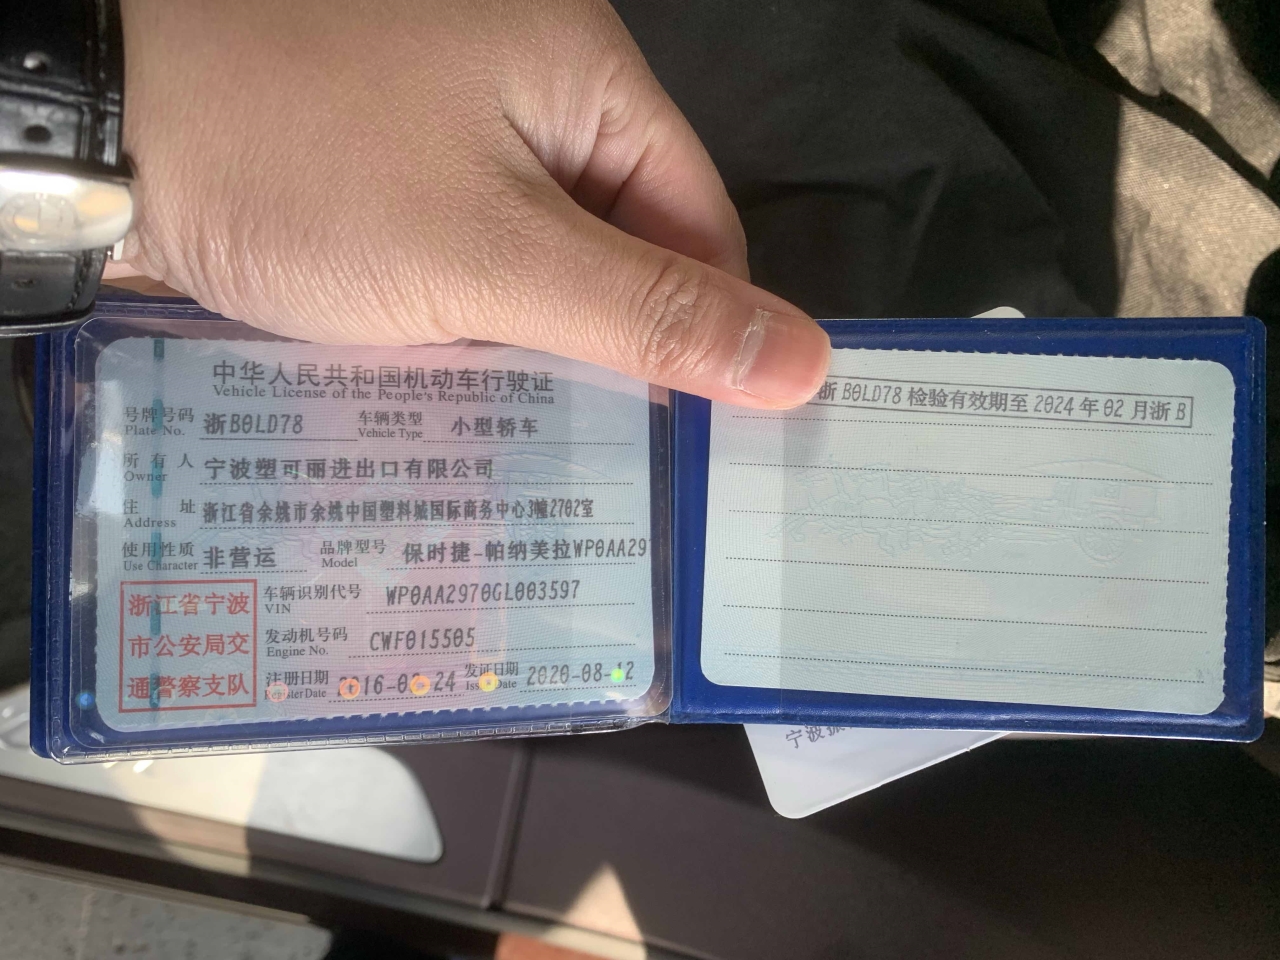 中华人民共和国机动车行驶证
Vehicle License of the People's Republic of China
号牌号码 浙B0LD78 车辆类型 小型轿车
Plate No. Vehicle Type
所有人 宁波塑可丽进出口有限公司
Owner
住址 浙江省余姚市余姚中国塑料城国际商务中心3幢2702室
Address
使用性质 非营运 品牌型号 保时捷-帕纳美拉WP0AA297
Use Character Model
浙江省宁波
市公安局交
通警察支队
车辆识别代号 WP0AA2970GL003597
VIN
发动机号码 CWF015505
Engine No.
注册日期 发证日期 2020-08-12
Register Date Issue Date
浙B0LD78检验有效期至2024年02月浙B
宁波